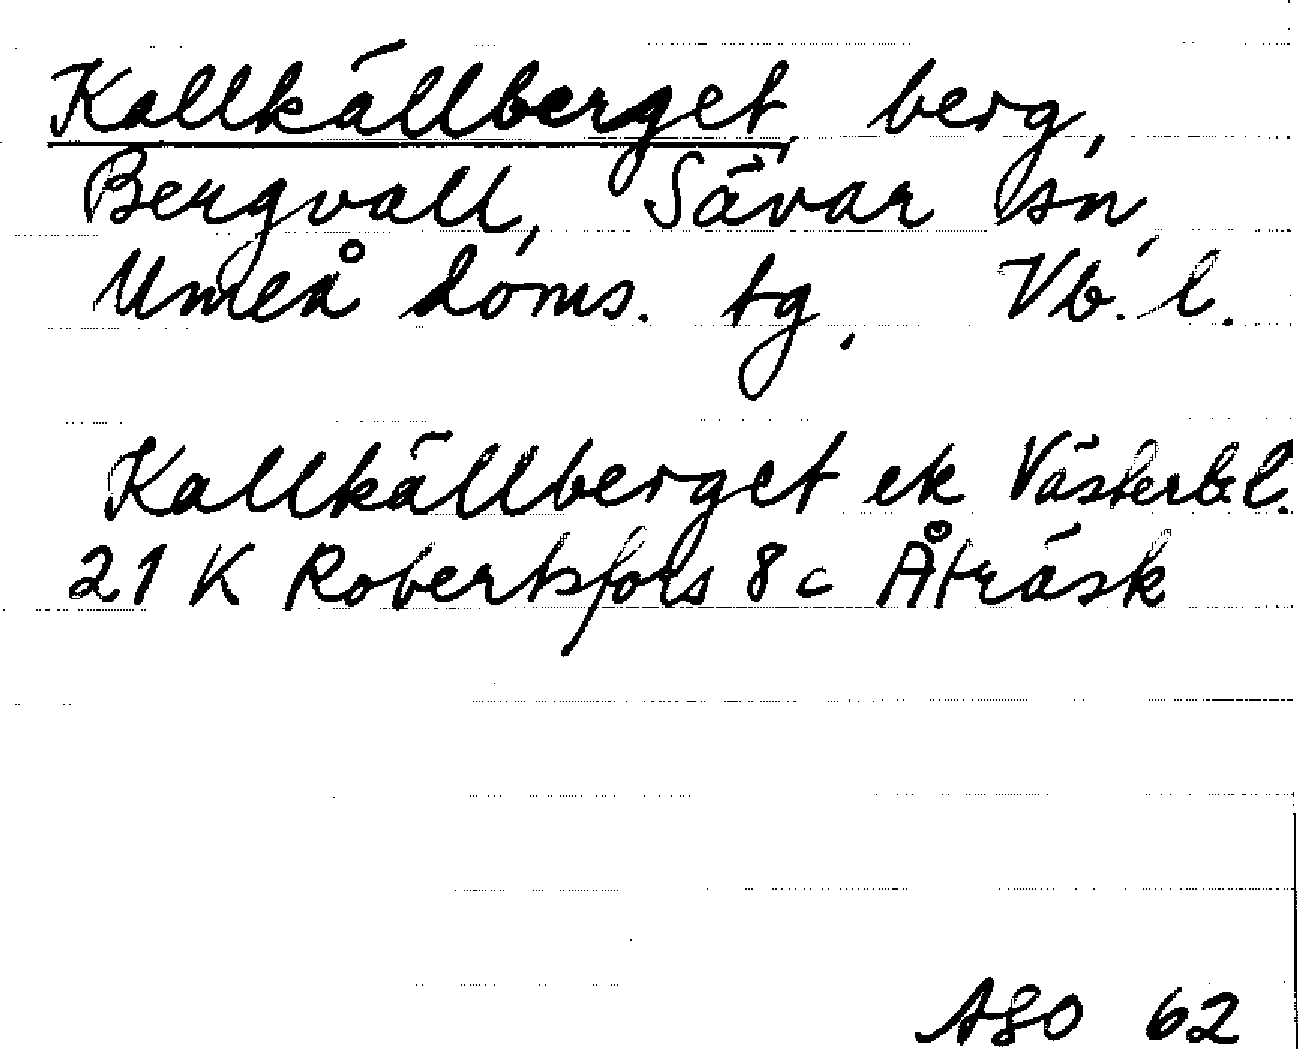 Kallkällberget, berg,
Bergvall, Sävar sn,
Umeå doms. tg, Vb. l.
Kallkällberget ek Västerb.l.
21 K Robertsfors 8 c Åträsk
ASO 62